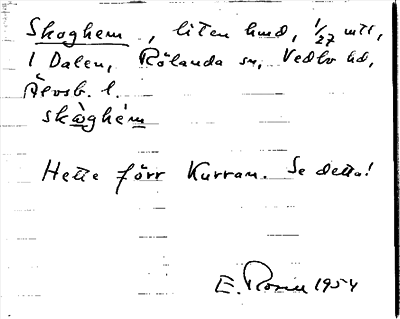 Skoghem, liten hmd, 1/27 mtl,
1 Dalen, Rölanda sn, Vedbo hd,
Älvsb. l.
skòghém
Hette förr Kurran. Se detta!
E. Rosell 1954